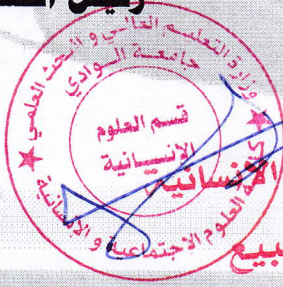 رئيس
وزارة التعليم العالي و البحث العلمي
جامعة الوادي
قسم العلوم
الإنسانية
كلية العلوم الإجتماعية و الإنسانية
الانسانية
بيع